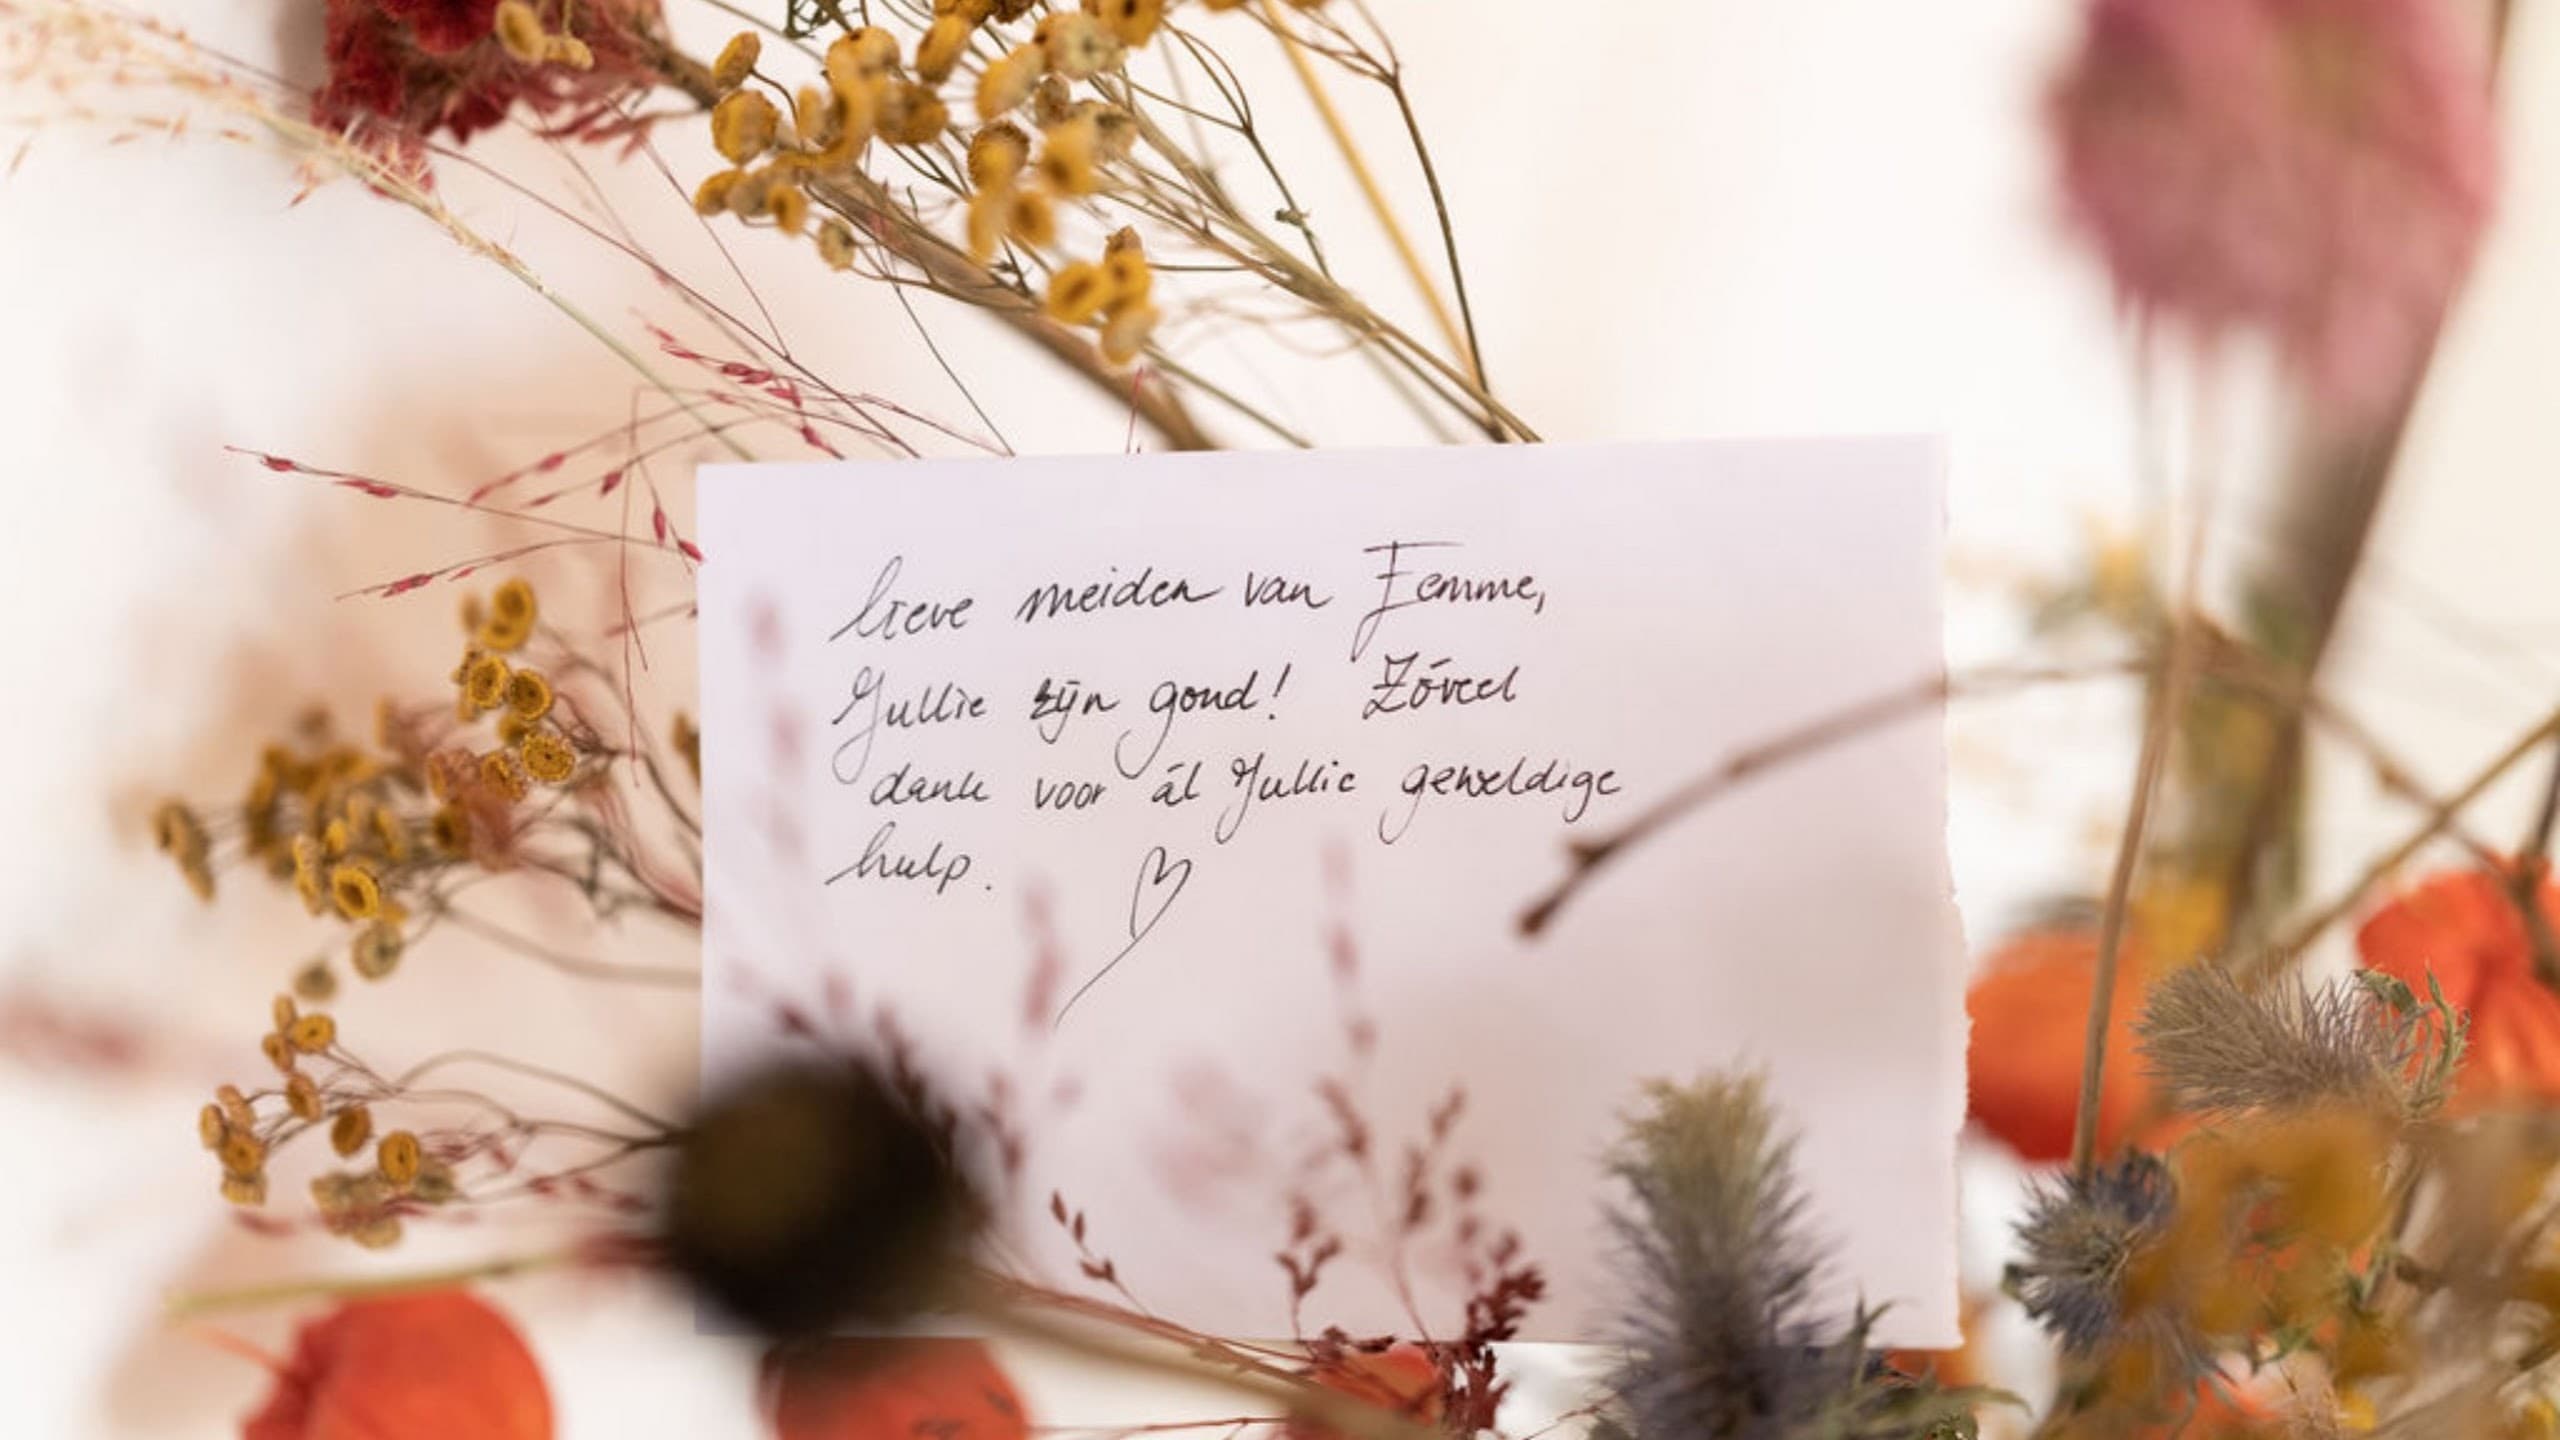 lieve meiden van Femme,
Jullie zijn goud! Zóveel
dank voor ál Jullie geweldige
hulp.